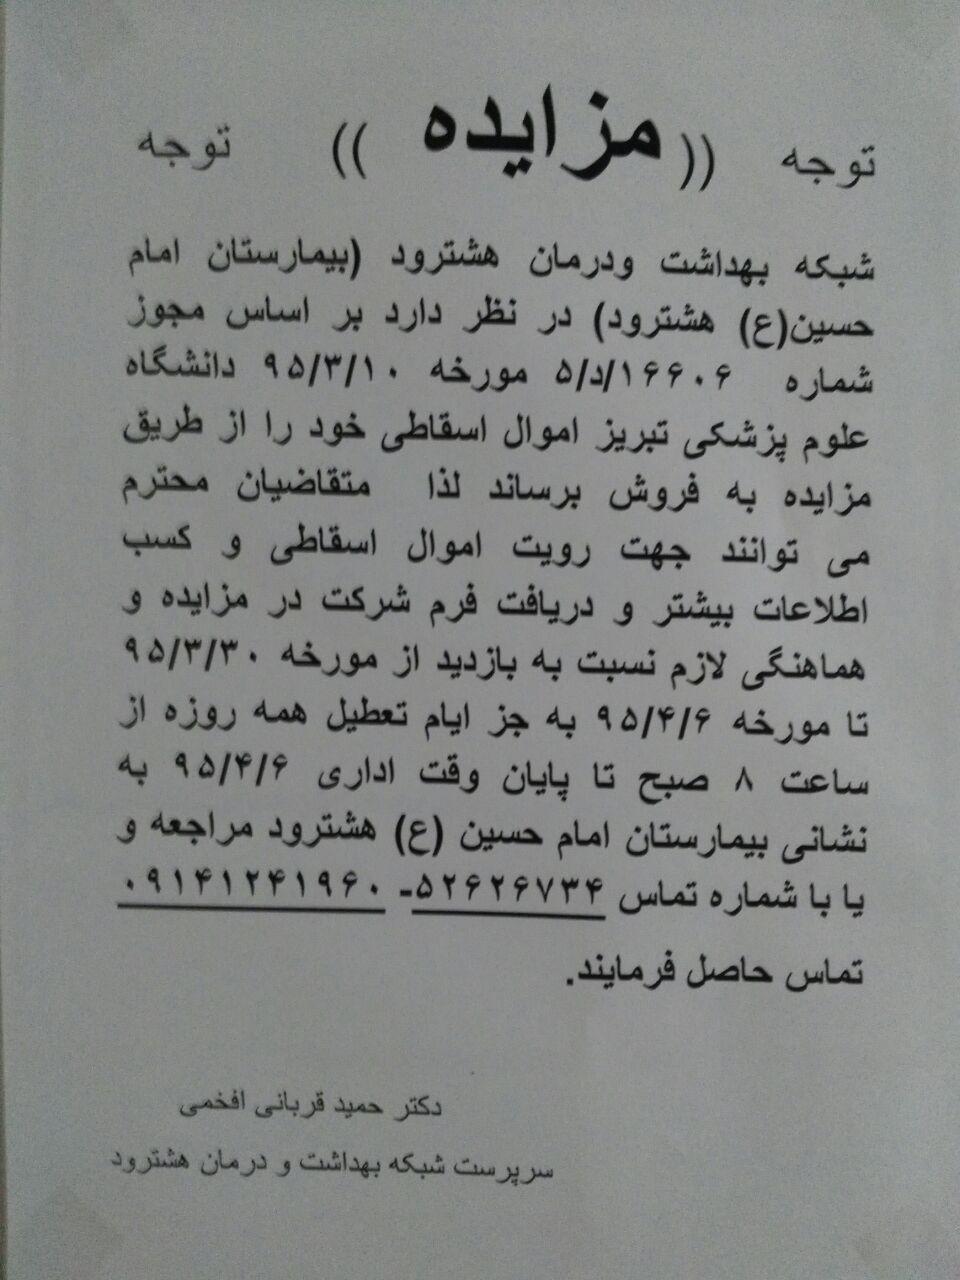 توجه (( مزایده )) توجه
شبکه بهداشت ودرمان هشترود (بیمارستان امام
حسین(ع) هشترود) در نظر دارد بر اساس مجوز
شماره ۵/د/۱۶۶۰۶ مورخه ۹۵/۳/۱۰ دانشگاه
علوم پزشکی تبریز اموال اسقاطی خود را از طریق
مزایده به فروش برساند لذا متقاضیان محترم
می توانند جهت رویت اموال اسقاطی و کسب
اطلاعات بیشتر و دریافت فرم شرکت در مزایده و
هماهنگی لازم نسبت به بازدید از مورخه ۹۵/۳/۳۰
تا مورخه ۹۵/۴/۶ به جز ایام تعطیل همه روزه از
ساعت ۸ صبح تا پایان وقت اداری ۹۵/۴/۶ به
نشانی بیمارستان امام حسین (ع) هشترود مراجعه و
یا با شماره تماس ۵۲۶۲۶۷۳۴- ۰۹۱۴۱۲۴۱۹۶۰
تماس حاصل فرمایند.
دکتر حمید قربانی افخمی
سرپرست شبکه بهداشت و درمان هشترود